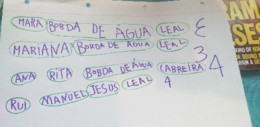 MARA BORDA DE ÁGUA LEAL 3
MARIANA BORDA DE ÁGUA LEAL 3
ANA RITA BORDA DE ÁGUA CABREIRA 4
RUI MANUEL JESUS LEAL 4